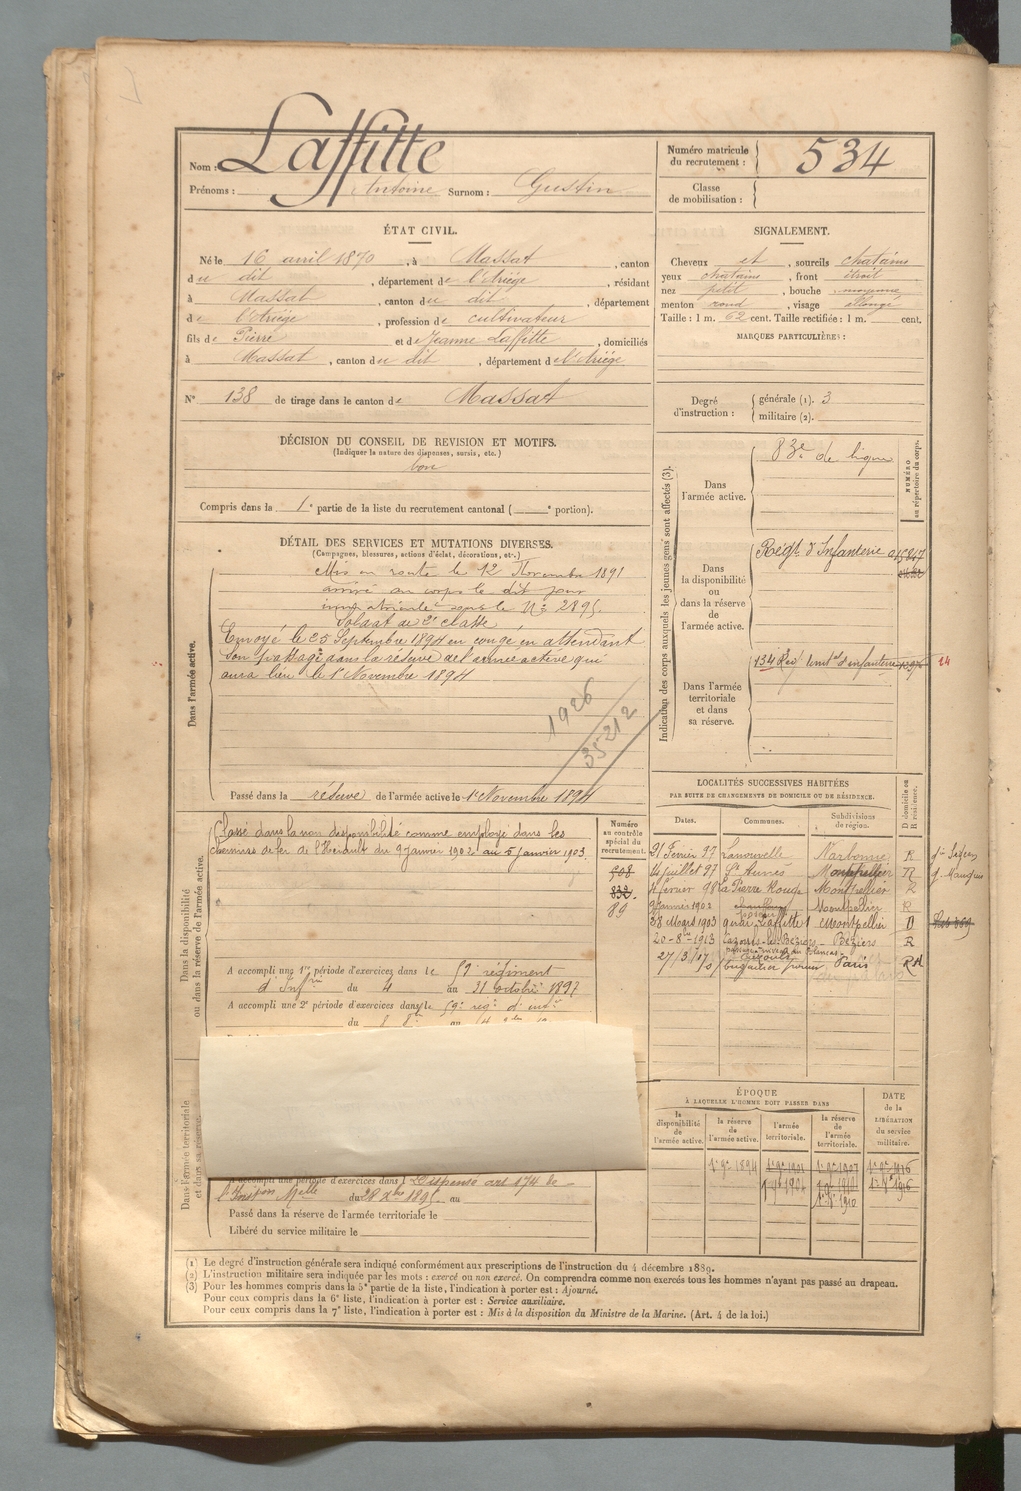 Nom : Laffitte
Prénoms : Antoine Surnom : Gustin
Numéro matricule du recrutement : 534
Classe de mobilisation :
ÉTAT CIVIL.
Né le 16 avril 1870, à Massat, canton
du dit, département de l'Ariége, résidant
à Massat, canton du dit, département
de l'Ariége, profession de cultivateur
fils de Pierre et de Jeanne Laffitte, domiciliés
à Massat, canton du dit, département de l'Ariége.
N° 138 de tirage dans le canton de Massat
SIGNALEMENT.
Cheveux et, sourcils chatains
yeux chatains, front étroit
nez petit, bouche moyenne
menton rond, visage allongé
Taille : 1 m. 62 cent. Taille rectifiée : 1 m. cent.
MARQUES PARTICULIÈRES :
Degré d'instruction : générale (1). 3
militaire (2).
DÉCISION DU CONSEIL DE REVISION ET MOTIFS.
(Indiquer la nature des dispenses, sursis, etc.)
bon
Compris dans la 1e partie de la liste du recrutement cantonal ( e portion).
DÉTAIL DES SERVICES ET MUTATIONS DIVERSES.
(Campagnes, blessures, actions d'éclat, décorations, etc.)
Dans l'armée active.
Mis en route le 12 Novembre 1891
arrivé au corps le dit jour
immatriculé sous le N° 2895.
Soldat de 2e classe
Envoyé le 25 Septembre 1894 en congé en attendant
son passage dans la réserve de l'armée active qui
aura lieu le 1er Novembre 1894
1926
35212
Passé dans la réserve de l'armée active le 1er Novembre 1894
Indication des corps auxquels les jeunes gens sont affectés (3).
NUMÉRO au répertoire du corps.
Dans l'armée active.
83e de ligne
Dans la disponibilité ou dans la réserve de l'armée active.
Régt d'Infanterie
Dans l'armée territoriale et dans sa réserve.
134 Rég territ al d'infanterie
14
Dans la disponibilité ou dans la réserve de l'armée active.
Classé dans la non disponibilité comme employé dans les
chemins de fer de l'Hérault du 9 janvier 1902 au 5 janvier 1903.
Numéro au contrôle spécial du recrutement.
508
832.
89
A accompli une 1re période d'exercices dans le 59e régiment
d'Infrie du 4 au 31 octobre 1897
A accompli une 2e période d'exercices dans le 59e regt d'infie
du au
LOCALITÉS SUCCESSIVES HABITÉES
PAR SUITE DE CHANGEMENTS DE DOMICILE OU DE RÉSIDENCE.
Dates. Communes. Subdivisions de région. D domicile ou R résidence.
21 Fevrier 97 Lanouvelle Narbonne R
14 juillet 97 St Aunès Montpellier R
4 février 98 La Pierre Rouge Montpellier R
9 janvier 1902 Montpellier R
28 Mars 1903 Laffitte 1 Montpellier D
20-8-1913 Cazouls-les-Béziers Béziers R
27/3/17 Paris
Dans l'armée territoriale et dans sa réserve.
A accompli une période d'exercices dans Dispensé art 174 de
l'Instion Melle du au
Passé dans la réserve de l'armée territoriale le
Libéré du service militaire le
ÉPOQUE
À LAQUELLE L'HOMME DOIT PASSER DANS
la disponibilité de l'armée active.
la réserve de l'armée active.
l'armée territoriale.
la réserve de l'armée territoriale.
DATE de la LIBÉRATION du service militaire.
1er 9bre 1894 1er 9bre 1904 1er 9bre 1907 1er 9bre 1916
(1) Le degré d'instruction générale sera indiqué conformément aux prescriptions de l'instruction du 4 décembre 1889.
(2) L'instruction militaire sera indiquée par les mots : exercé ou non exercé. On comprendra comme non exercés tous les hommes n'ayant pas passé au drapeau.
(3) Pour les hommes compris dans la 5e partie de la liste, l'indication à porter est : Ajourné.
Pour ceux compris dans la 6e liste, l'indication à porter est : Service auxiliaire.
Pour ceux compris dans la 7e liste, l'indication à porter est : Mis à la disposition du Ministre de la Marine. (Art. 4 de la loi.)